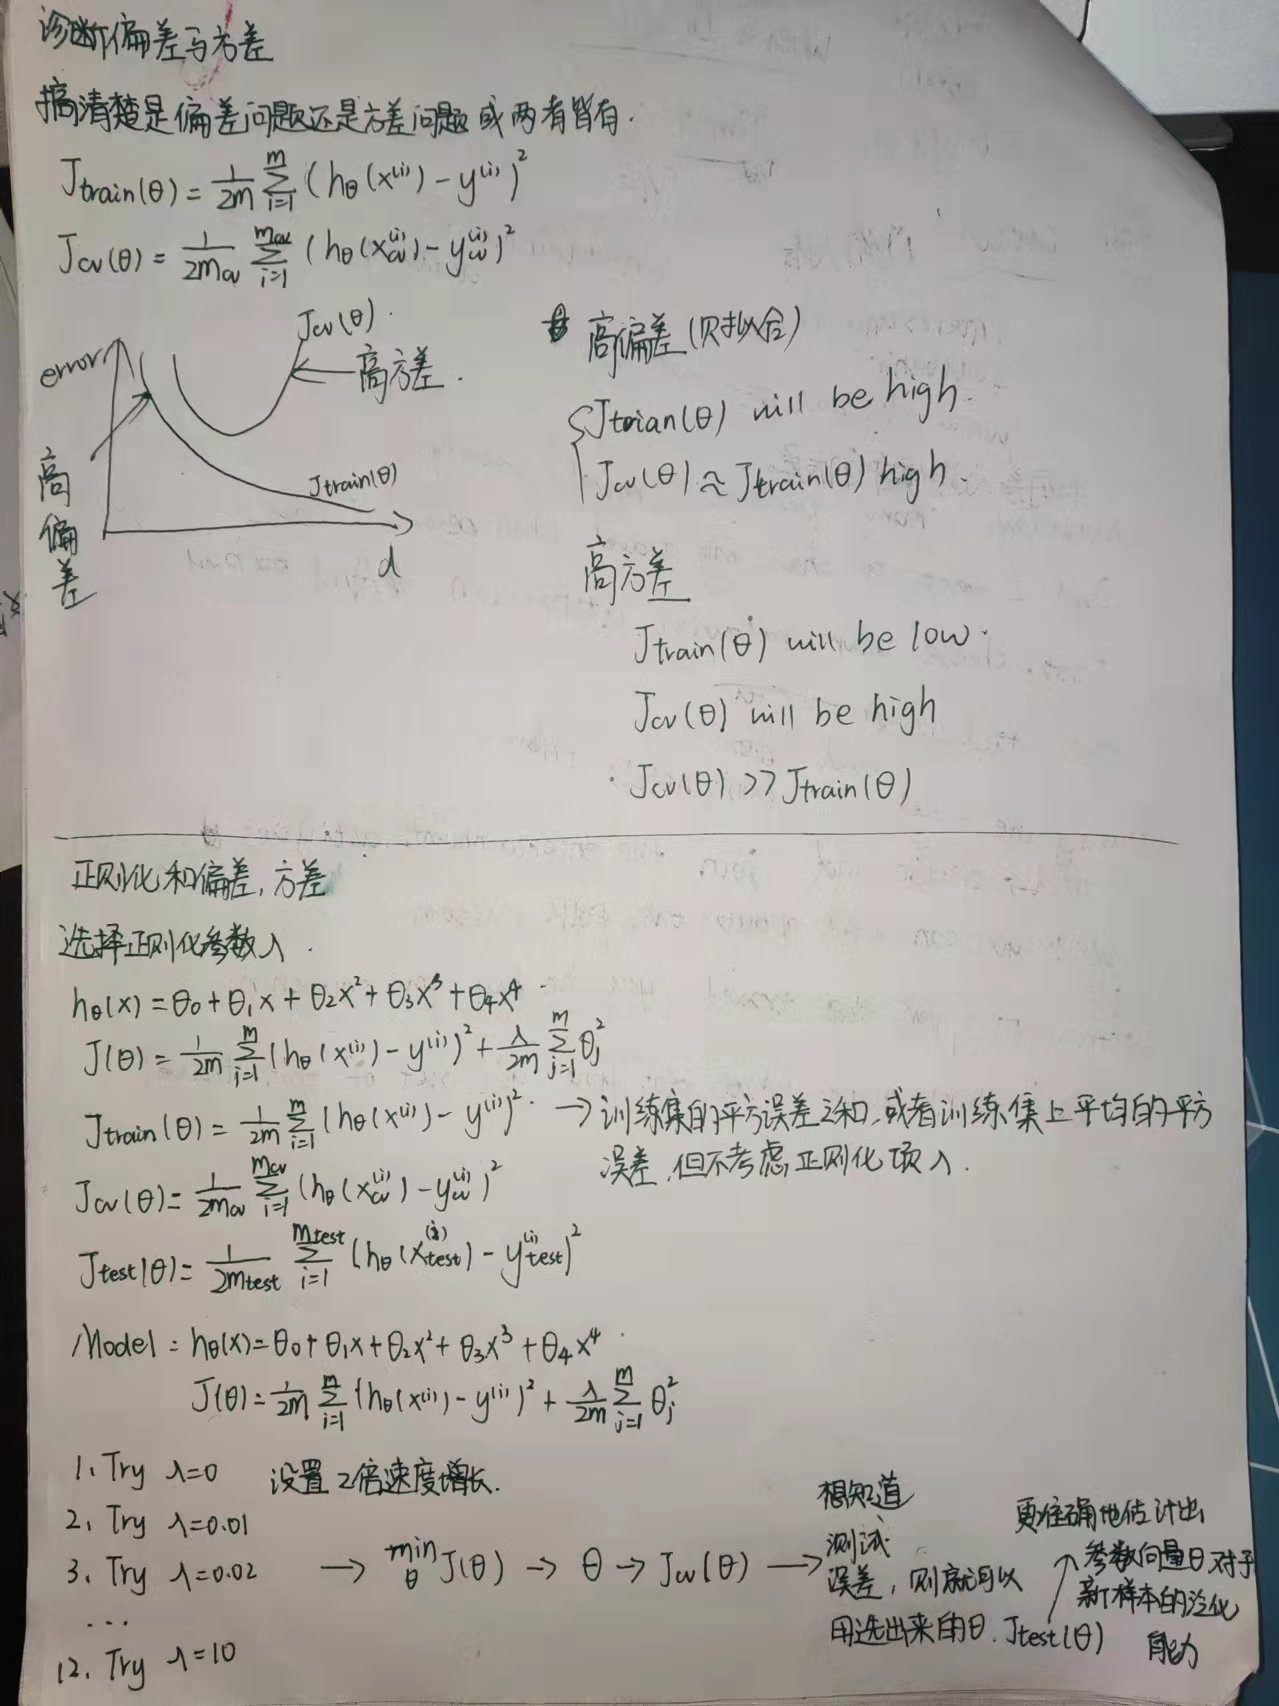 诊断偏差与方差
搞清楚是偏差问题还是方差问题或两者皆有.
Jtrain(θ) = 1/2m Σ_{i=1}^{m} (hθ(x⁽ⁱ⁾) - y⁽ⁱ⁾)²
Jcv(θ) = 1/2mcv Σ_{i=1}^{mcv} (hθ(xcv⁽ⁱ⁾) - ycv⁽ⁱ⁾)²
error
Jcv(θ).
←高方差.
高偏差
Jtrain(θ)
d
高偏差(欠拟合)
Jtrian(θ) will be high.
Jcv(θ) ≈ Jtrain(θ) high.
高方差
Jtrain(θ) will be low.
Jcv(θ) will be high
Jcv(θ) >> Jtrain(θ)
正则化和偏差,方差
选择正则化参数λ.
hθ(x) = θ0 + θ1x + θ2x² + θ3x³ + θ4x⁴
J(θ) = 1/2m Σ_{i=1}^{m} (hθ(x⁽ⁱ⁾) - y⁽ⁱ⁾)² + λ/2m Σ_{j=1}^{m} θj²
Jtrain(θ) = 1/2m Σ_{i=1}^{m} (hθ(x⁽ⁱ⁾) - y⁽ⁱ⁾)². → 训练集的平方误差之和,或者训练集上平均的平方
误差,但不考虑正则化项λ.
Jcv(θ) = 1/2mcv Σ_{i=1}^{mcv} (hθ(xcv⁽ⁱ⁾) - ycv⁽ⁱ⁾)²
Jtest(θ) = 1/2mtest Σ_{i=1}^{mtest} (hθ(xtest⁽ⁱ⁾) - ytest⁽ⁱ⁾)²
Model: hθ(x) = θ0 + θ1x + θ2x² + θ3x³ + θ4x⁴
J(θ) = 1/2m Σ_{i=1}^{m} (hθ(x⁽ⁱ⁾) - y⁽ⁱ⁾)² + λ/2m Σ_{j=1}^{m} θj²
1. Try λ=0 设置2倍速度增长.
2. Try λ=0.01
3. Try λ=0.02
...
12. Try λ=10
→ min_θ J(θ) → θ → Jcv(θ) →
想知道
测试
误差,则就可以
用选出来的θ. Jtest(θ)
更准确地估计出
参数向量θ对于
新样本的泛化
能力